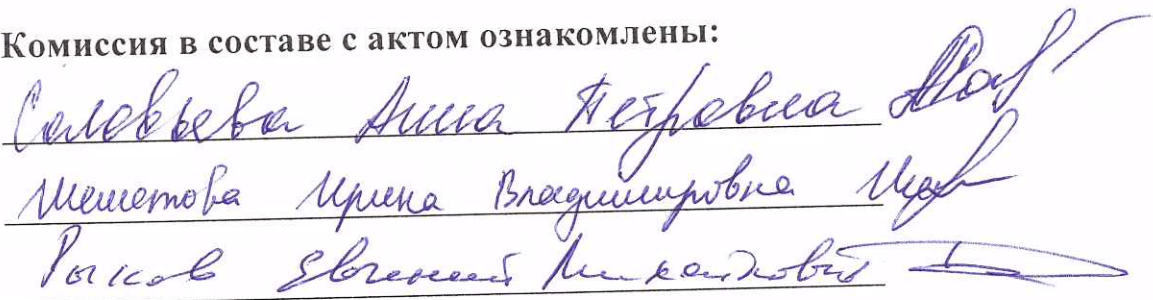 Комиссия в составе с актом ознакомлены:
Соловьева Анна Петровна
Ирина Владимировна
Рыков Евгений Михайлович